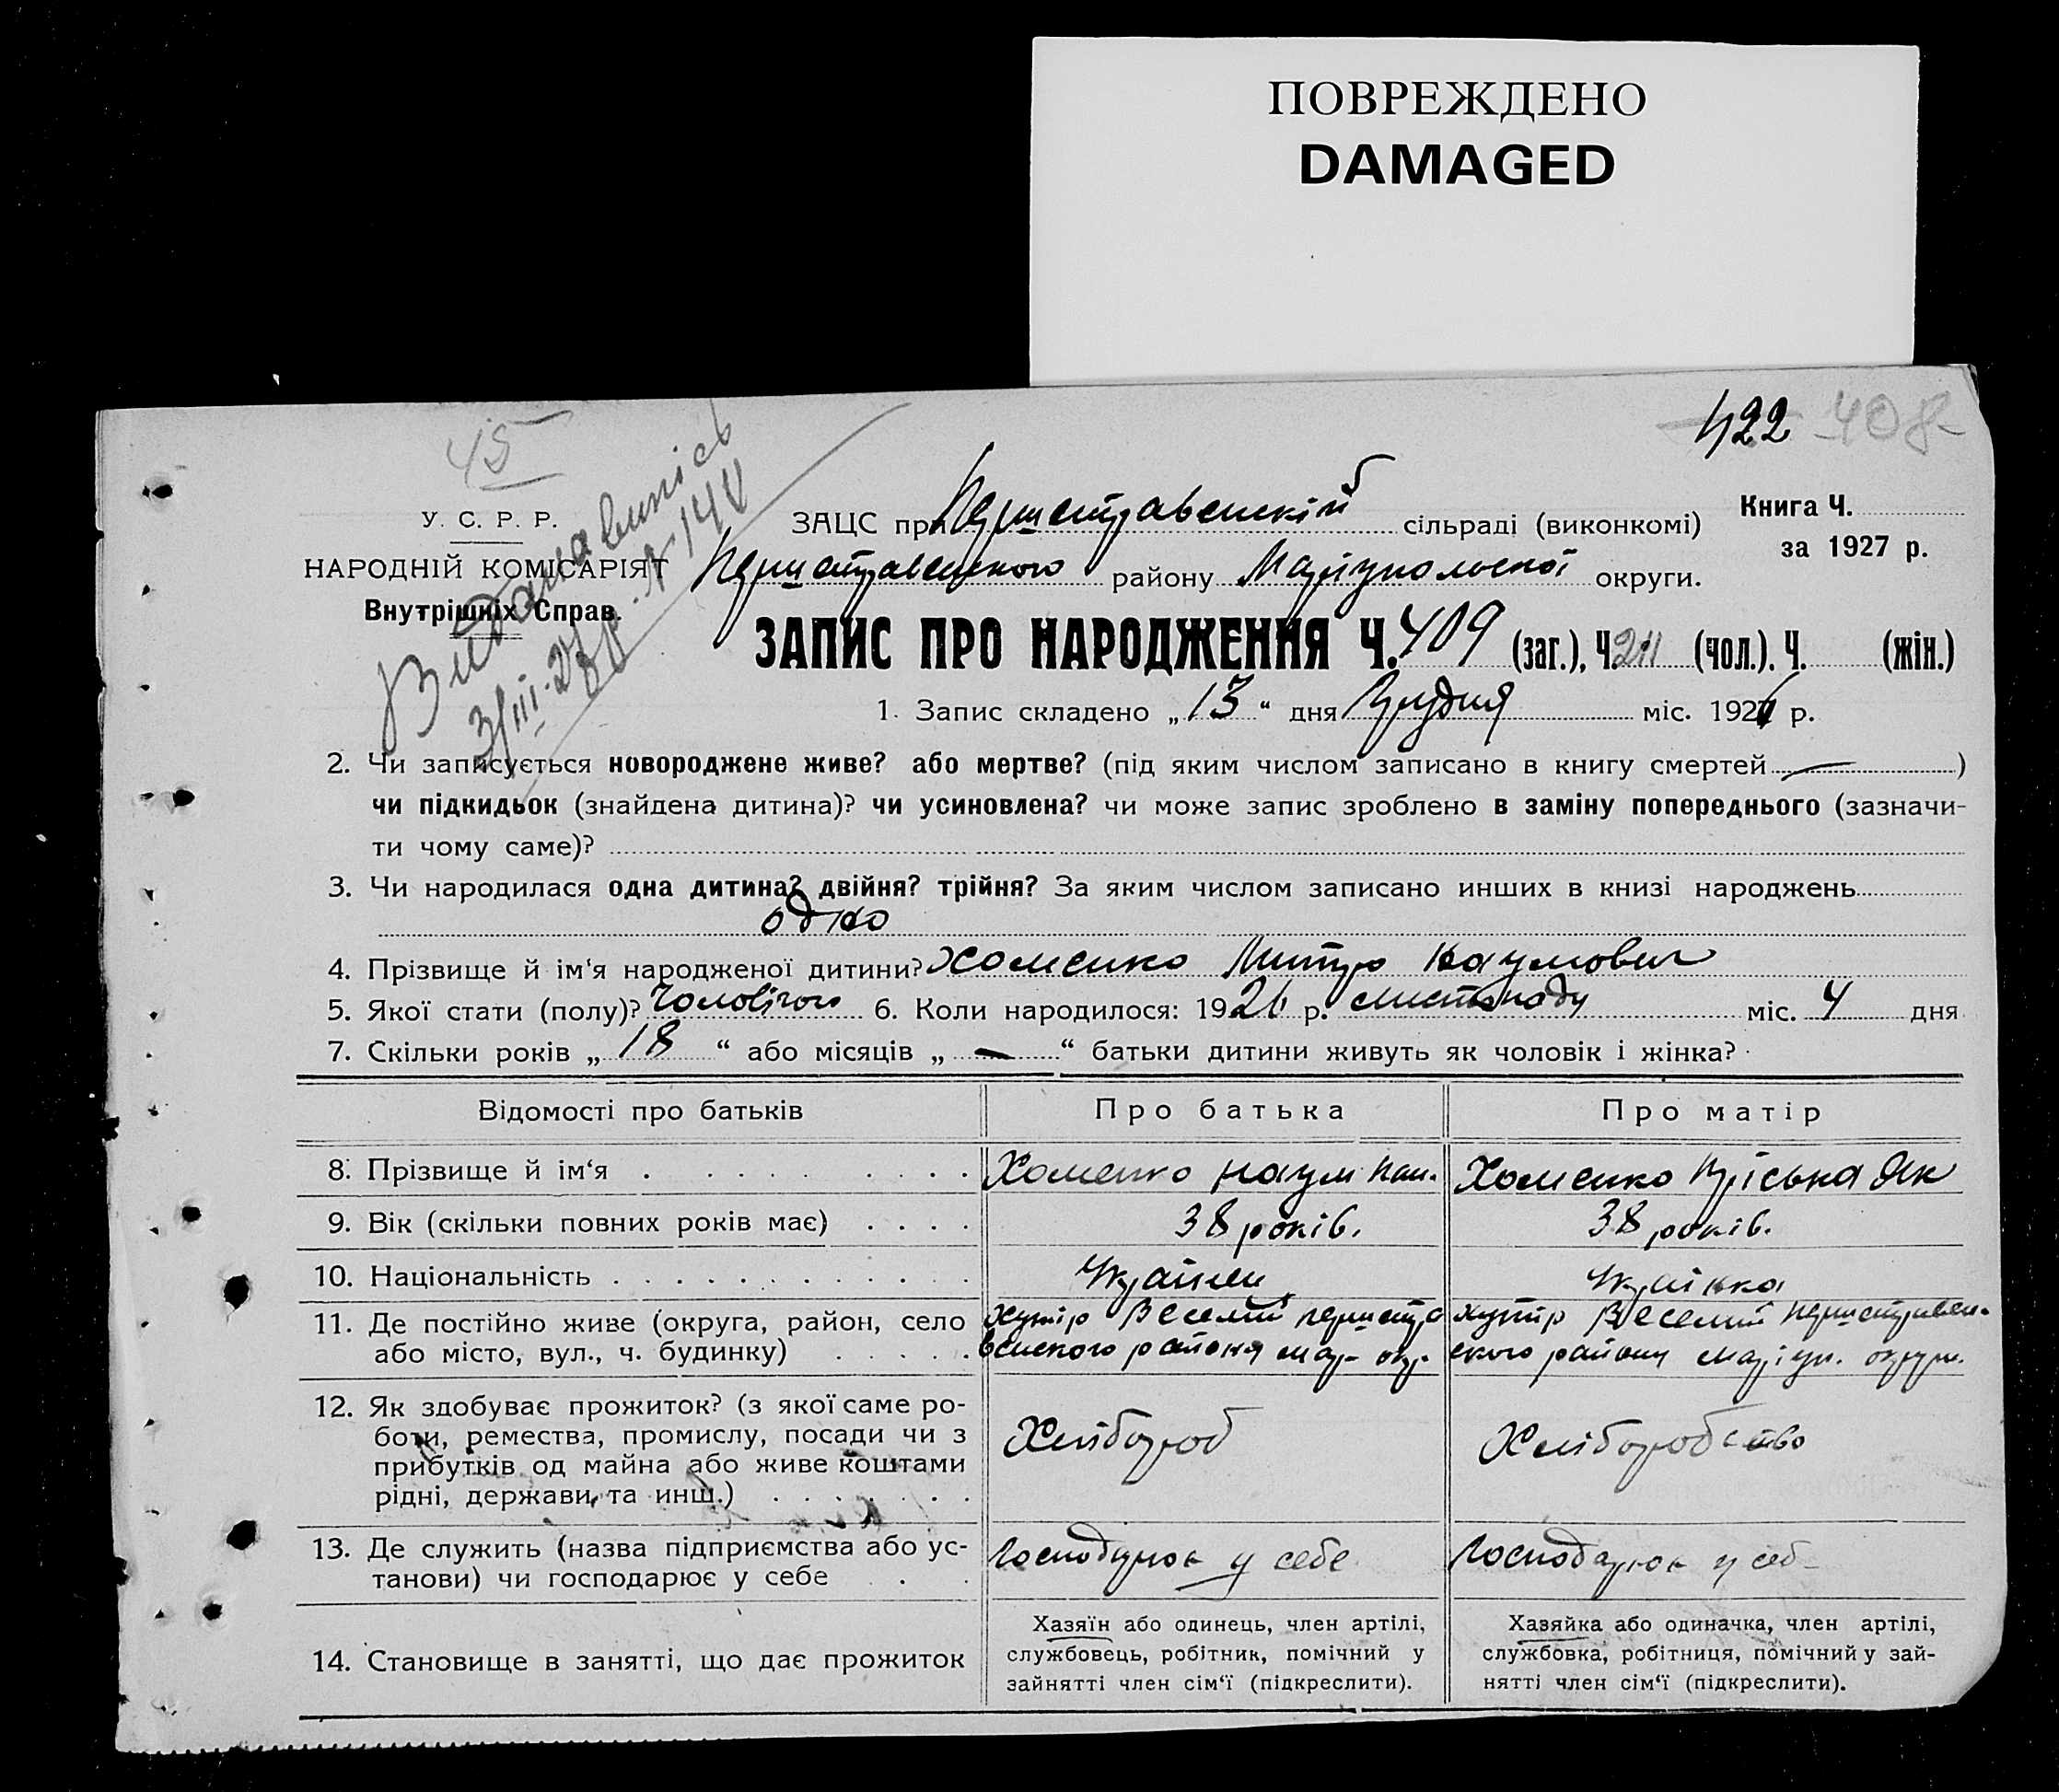 ПОВРЕЖДЕНО
DAMAGED
422 408
45
У. С. Р. Р.
НАРОДНІЙ КОМІСАРІЯТ
Внутрішніх Справ.
ЗАЦС при Першетравенскій сільраді (виконкомі)
Книга Ч.
за 1927 р.
Першетравенского району Маріупольскої округи.
ЗАПИС ПРО НАРОДЖЕННЯ Ч. 409 (заг.), Ч. 211 (чол.). Ч. (жін.)
1. Запис складено „ 13 “ дня Грудня міс. 1926 р.
2. Чи записується новороджене живе? або мертве? (під яким числом записано в книгу смертей — )
чи підкидьок (знайдена дитина)? чи усиновлена? чи може запис зроблено в заміну попереднього (зазначи-
ти чому саме)?
3. Чи народилася одна дитина? двійня? трійня? За яким числом записано инших в книзі народжень
одно
4. Прізвище й ім‘я народженої дитини? Хоменко Митро Наумович
5. Якої стати (полу)? Чоловічого 6. Коли народилося: 1926 р. листопаду міс. 4 дня
7. Скільки років „ 18 “ або місяців „ — “ батьки дитини живуть як чоловік і жінка?
Відомості про батьків Про батька Про матір
8. Прізвище й ім‘я Хоменко Наум Хоменко
9. Вік (скільки повних років має) 38 років. 38 років.
10. Національність Украінец Украінка
11. Де постійно живе (округа, район, село хутір Веселий першетра хутір Веселий Першетравен-
або місто, вул., ч. будинку) венского района мар. окр. ского району маріуп. округи.
12. Як здобуває прожиток? (з якої саме ро-
боти, ремества, промислу, посади чи з Хлібороб Хліборобство
прибутків од майна або живе коштами
рідні, держави, та инш.)
13. Де служить (назва підприємства або ус- Господарює у себе Господарює у себ
танови) чи господарює у себе
14. Становище в занятті, що дає прожиток
Хазяїн або одинець, член артілі,
службовець, робітник, помічний у
зайнятті член сім‘ї (підкреслити).
Хазяйка або одиначка, член артілі,
службовка, робітниця, помічний у зай-
нятті член сім‘ї (підкреслити).